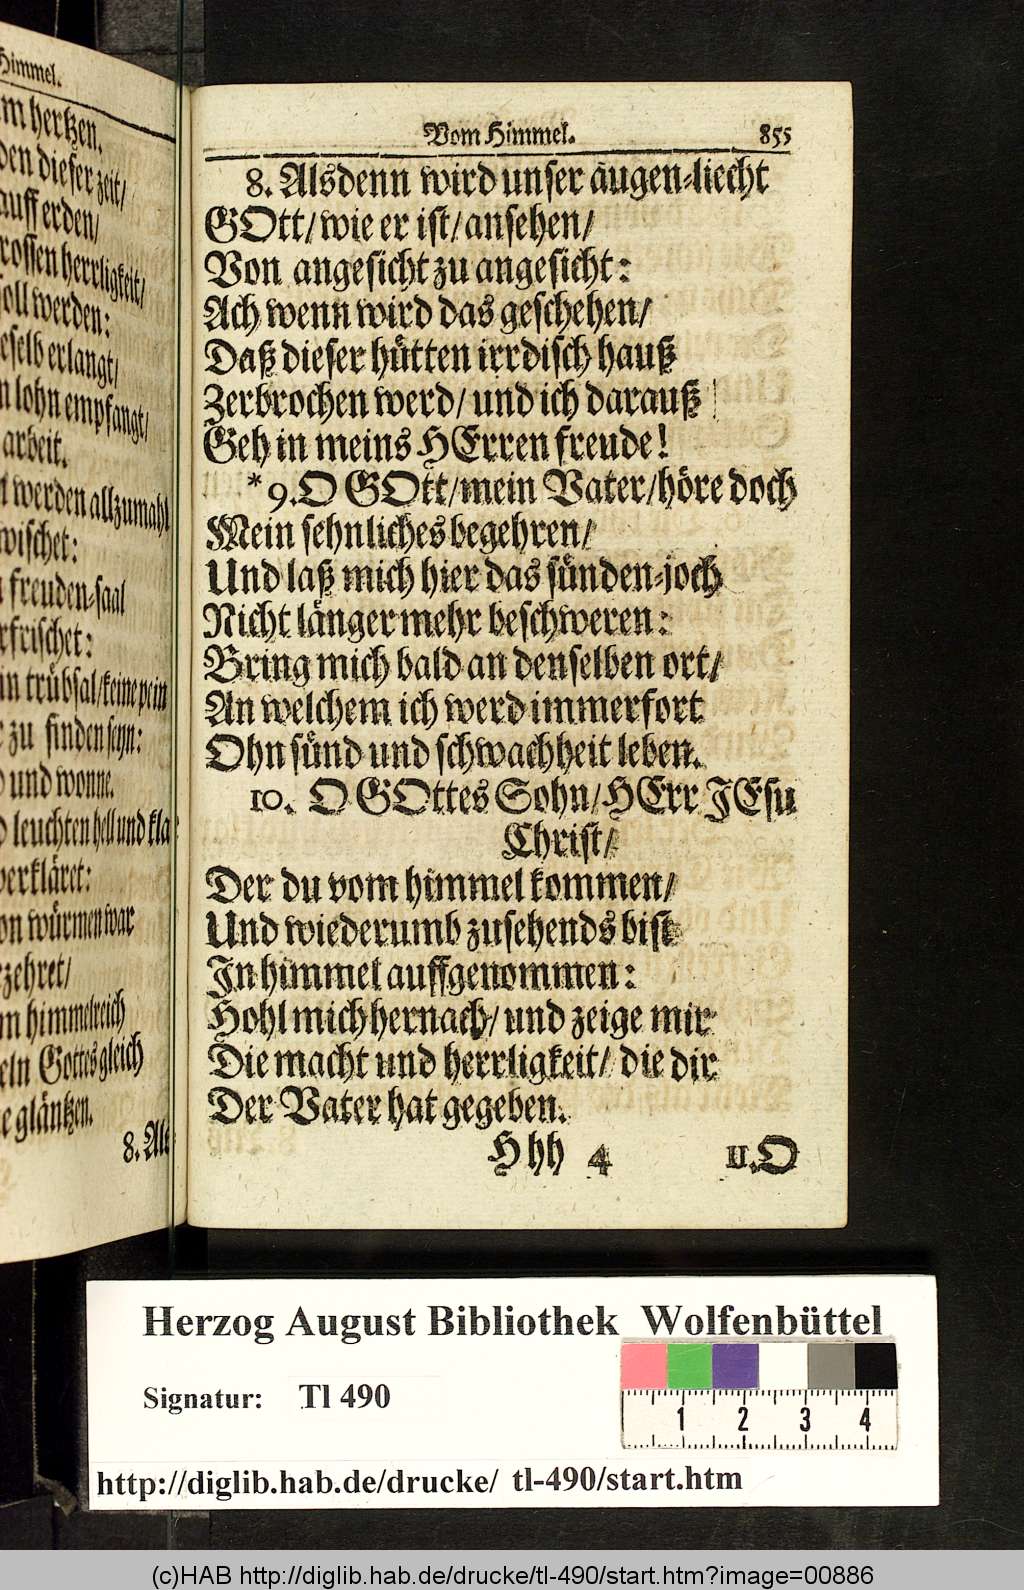 Himmel.
hertzen.
dieser zeit/
auff erden/
herrligkeit/
soll werden:
erlangt/
lohn empfangt/
arbeit.
werden allzumahl
wischet:
freuden-saal
erfrischet:
trübsal/keine pein
zu finden seyn:
und wonne.
leuchten hell und klar
verkläret:
von würmen war
zehret/
himmelreich
Gottes gleich
gläntzen.
8. Als
Vom Himmel. 855
8. Alsdenn wird unser augen-liecht
GOtt/wie er ist/ansehen/
Von angesicht zu angesicht:
Ach wenn wird das geschehen/
Daß dieser hütten irrdisch hauß
Zerbrochen werd/ und ich darauß
Geh in meins HErren freude!
*9. O GOtt/mein Vater/höre doch
Mein sehnliches begehren/
Und laß mich hier das sünden-joch
Nicht länger mehr beschweren:
Bring mich bald an denselben ort/
An welchem ich werd immerfort
Ohn sünd und schwachheit leben.
10. O GOttes Sohn/HErr JEsu
Christ/
Der du vom himmel kommen/
Und wiederumb zusehends bist
In himmel auffgenommen:
Hohl mich hernach/ und zeige mir
Die macht und herrligkeit/ die dir
Der Vater hat gegeben.
Hhh 4 11. O
Herzog August Bibliothek Wolfenbüttel
Signatur: Tl 490
1 2 3 4
http://diglib.hab.de/drucke/ tl-490/start.htm
(c)HAB http://diglib.hab.de/drucke/tl-490/start.htm?image=00886